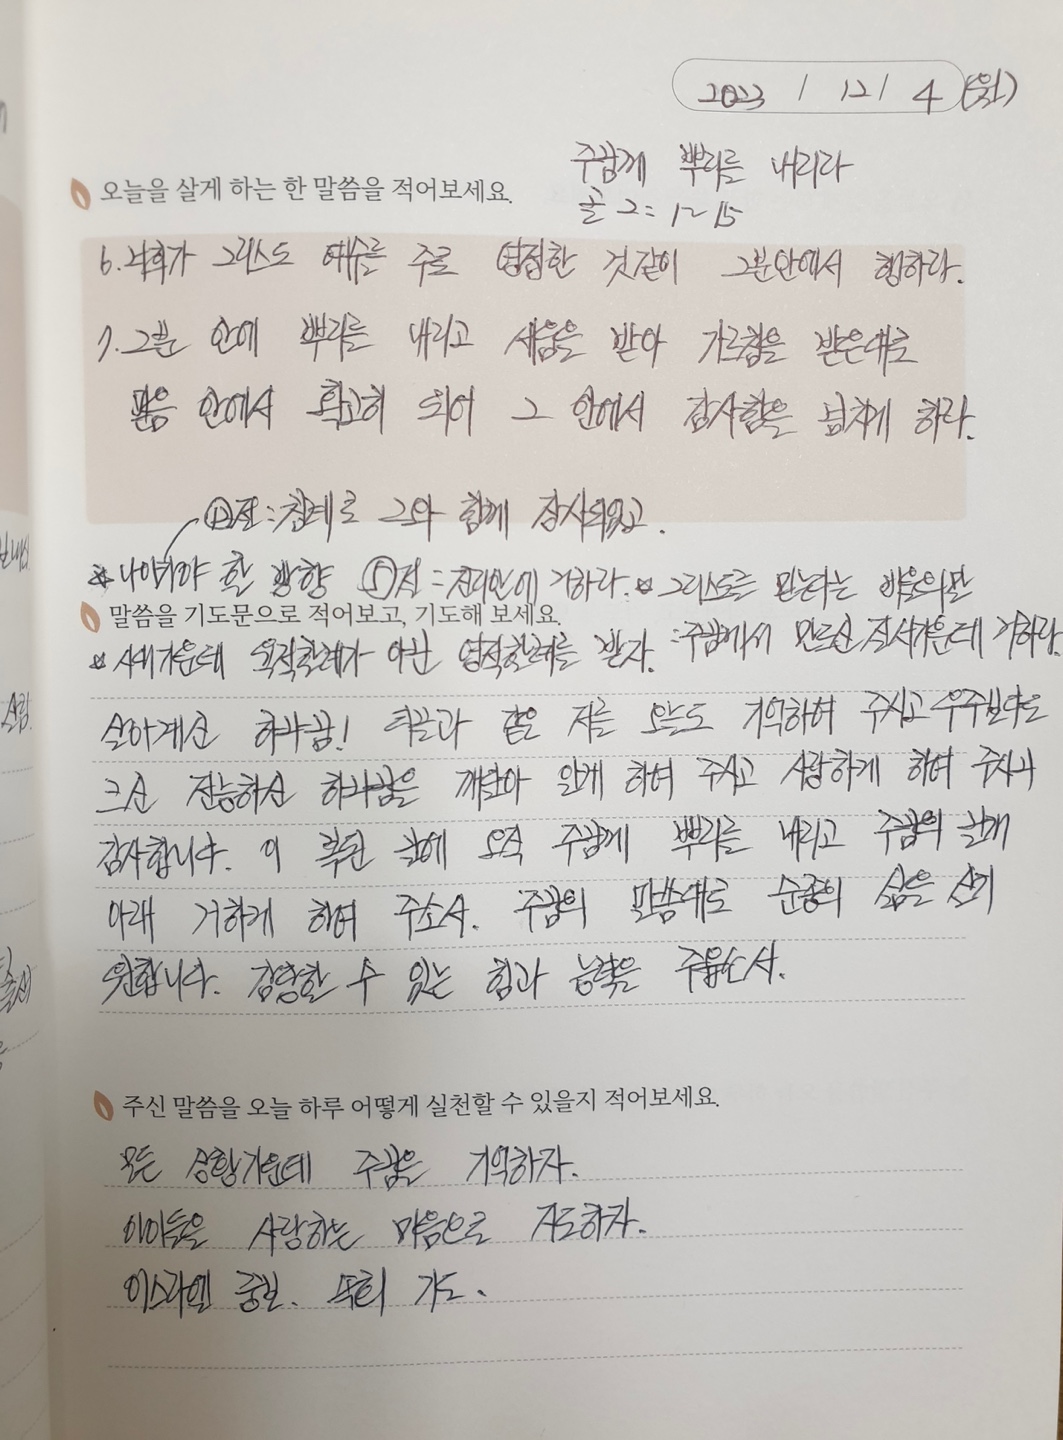 2023 / 12 / 4 (월)
주님께 뿌리를 내리라
골 2: 1~15
오늘을 살게 하는 한 말씀을 적어보세요.
6. 너희가 그리스도 예수를 주로 영접한 것같이 그분안에서 행하라.
7. 그분 안에 뿌리를 내리고 세움을 받아 가르침을 받은대로
믿음 안에서 확고히 되어 그 안에서 감사함을 넘치게 하라.
⑫절: 침례로 그와 함께 장사되었고.
나아가야 할 방향 ⑤절: 질서안에 거하라. 그리스도를 믿는다는 믿음의
말씀을 기도문으로 적어보고, 기도해 보세요.
세가운데 육적할례가 아닌 영적할례를 받자. : 주님께서 만드신 질서가운데 거하라.
살아계신 하나님! 티끌과 같은 저를 오늘도 기억하여 주시고 우주보다도
크신 전능하신 하나님을 깨달아 알게 하여 주시고 사랑하게 하여 주시니
감사합니다. 이 복된 날에 오직 주님께 뿌리를 내리고 주님의 날개
아래 거하게 하여 주소서. 주님의 말씀대로 순종의 삶을 살기
원합니다. 감당할 수 있는 힘과 능력을 주옵소서.
주신 말씀을 오늘 하루 어떻게 실천할 수 있을지 적어보세요.
모든 상황가운데 주님을 기억하자.
아이들을 사랑하는 마음으로 지도하자.
이스라엘 중보. 목회 기도.